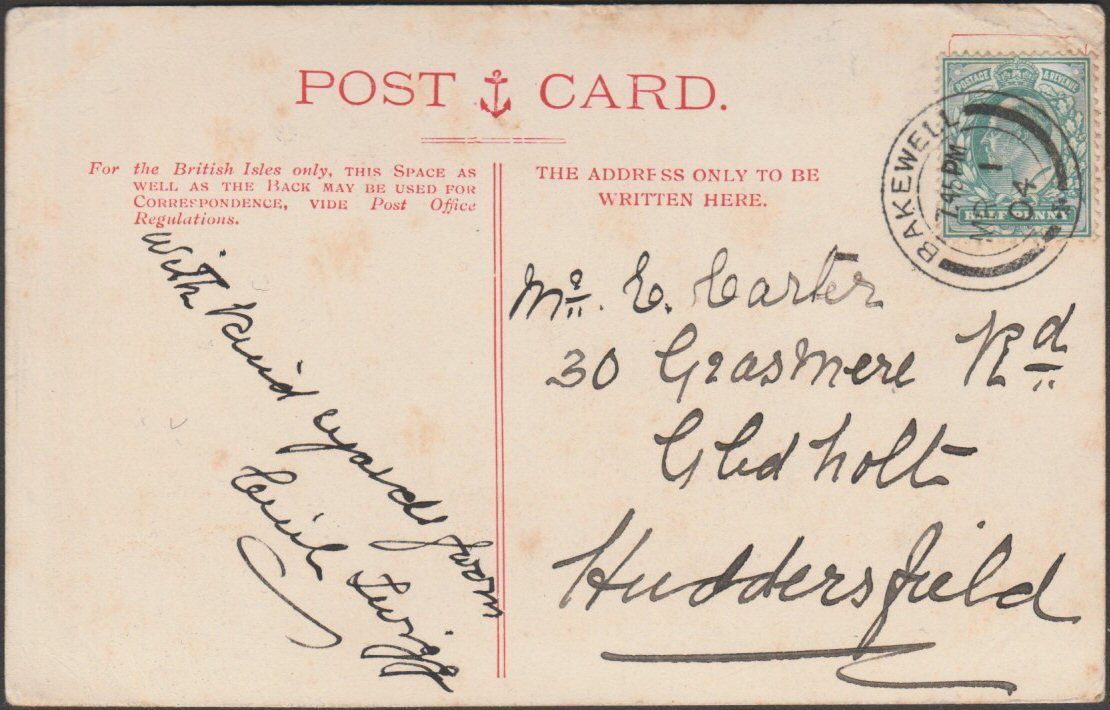 POST CARD.
For the British Isles only, THIS SPACE AS
WELL AS THE BACK MAY BE USED FOR
CORRESPONDENCE, VIDE Post Office
Regulations.
THE ADDRESS ONLY TO BE
WRITTEN HERE.
POSTAGE & REVENUE
HALFPENNY
BAKEWELL
7.45 PM
MR 1
04
With kind regards from
Cecil
Mr. E. Carter
30 Grasmere Rd
Gledholt
Huddersfield